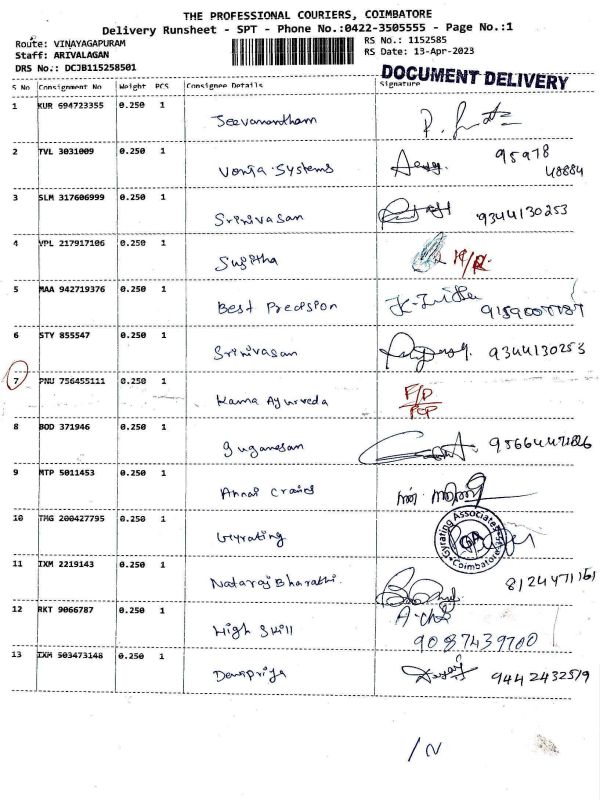 THE PROFESSIONAL COURIERS, COIMBATORE
Delivery Runsheet - SPT - Phone No.:0422-3505555 - Page No.:1
Route: VINAYAGAPURAM RS No.: 1152585
Staff: ARIVALAGAN RS Date: 13-Apr-2023
DRS No.: DCJB115258501
DOCUMENT DELIVERY
S No Consignment No Weight PCS Consignee Details Signature
1 KUR 694723355 0.250 1
Jeevanantham
2 TVL 3031009 0.250 1 95978
Systems 48884
3 SLM 317606999 0.250 1
Srinivasan 9344130253
4 VPL 217917106 0.250 1
Sujitha
5 MAA 942719376 0.250 1
Best Precision
6 STY 855547 0.250 1
Srinivasan 9344130253
7 PNU 756455111 0.250 1 F/D
Kama Ayurveda PCP
8 BOD 371946 0.250 1
Suganesan
9 MTP 5011453 0.250 1
Annai
10 TMG 200427795 0.250 1 Gyrating Associates
Gyrating GA
Coimbatore
11 IXM 2219143 0.250 1
Nataraj Bharathi. 8124471161
12 RKT 9066787 0.250 1
High Skill 9087439700
13 IXM 503473148 0.250 1
Devipriya 9442432519